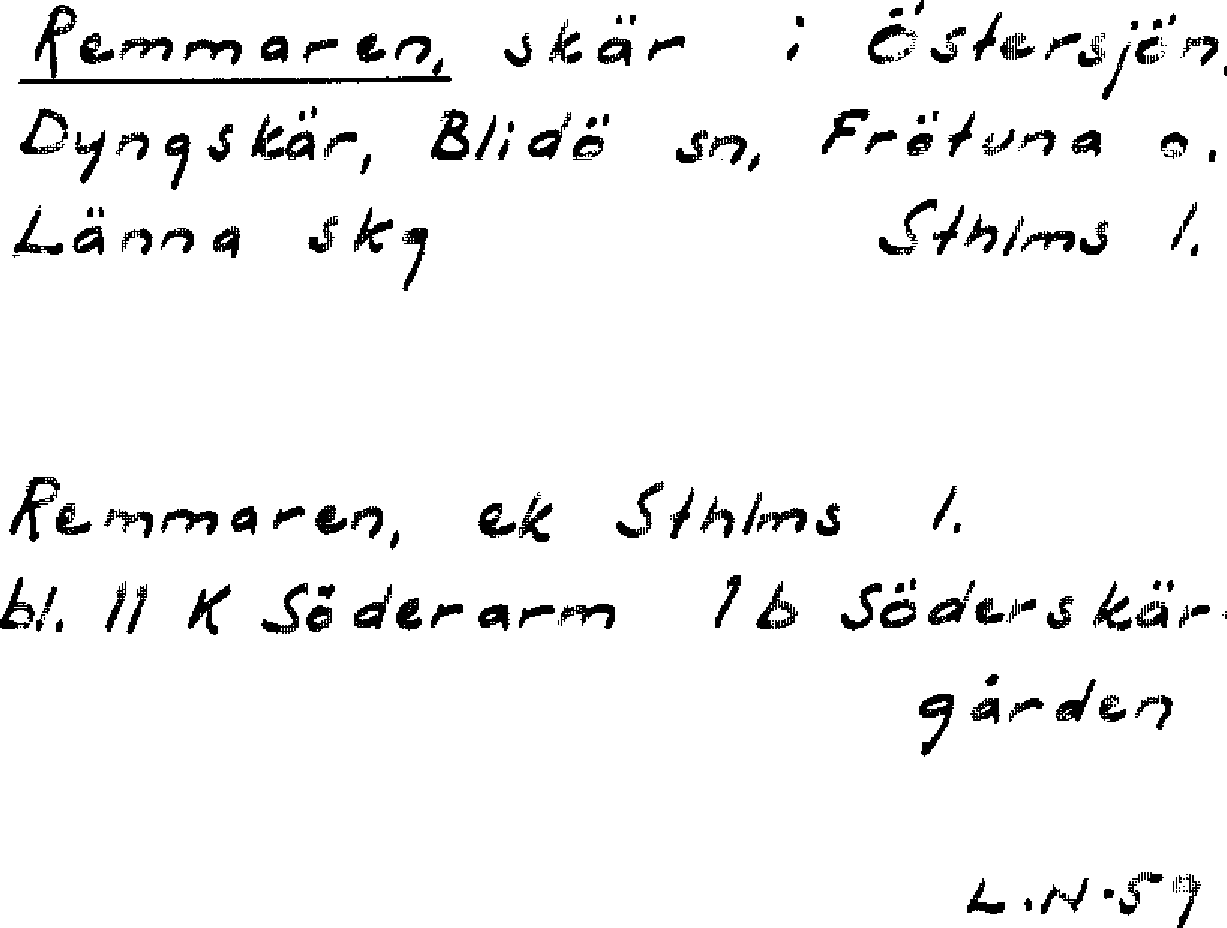 Remmaren, skär i Östersjön,
Dyngskär, Blidö sn, Frötuna o.
Länna skg Sthlms l.
Remmaren, ek Sthlms l.
bl. 11 K Söderarm 1b Söderskär-
gården
L.N.59